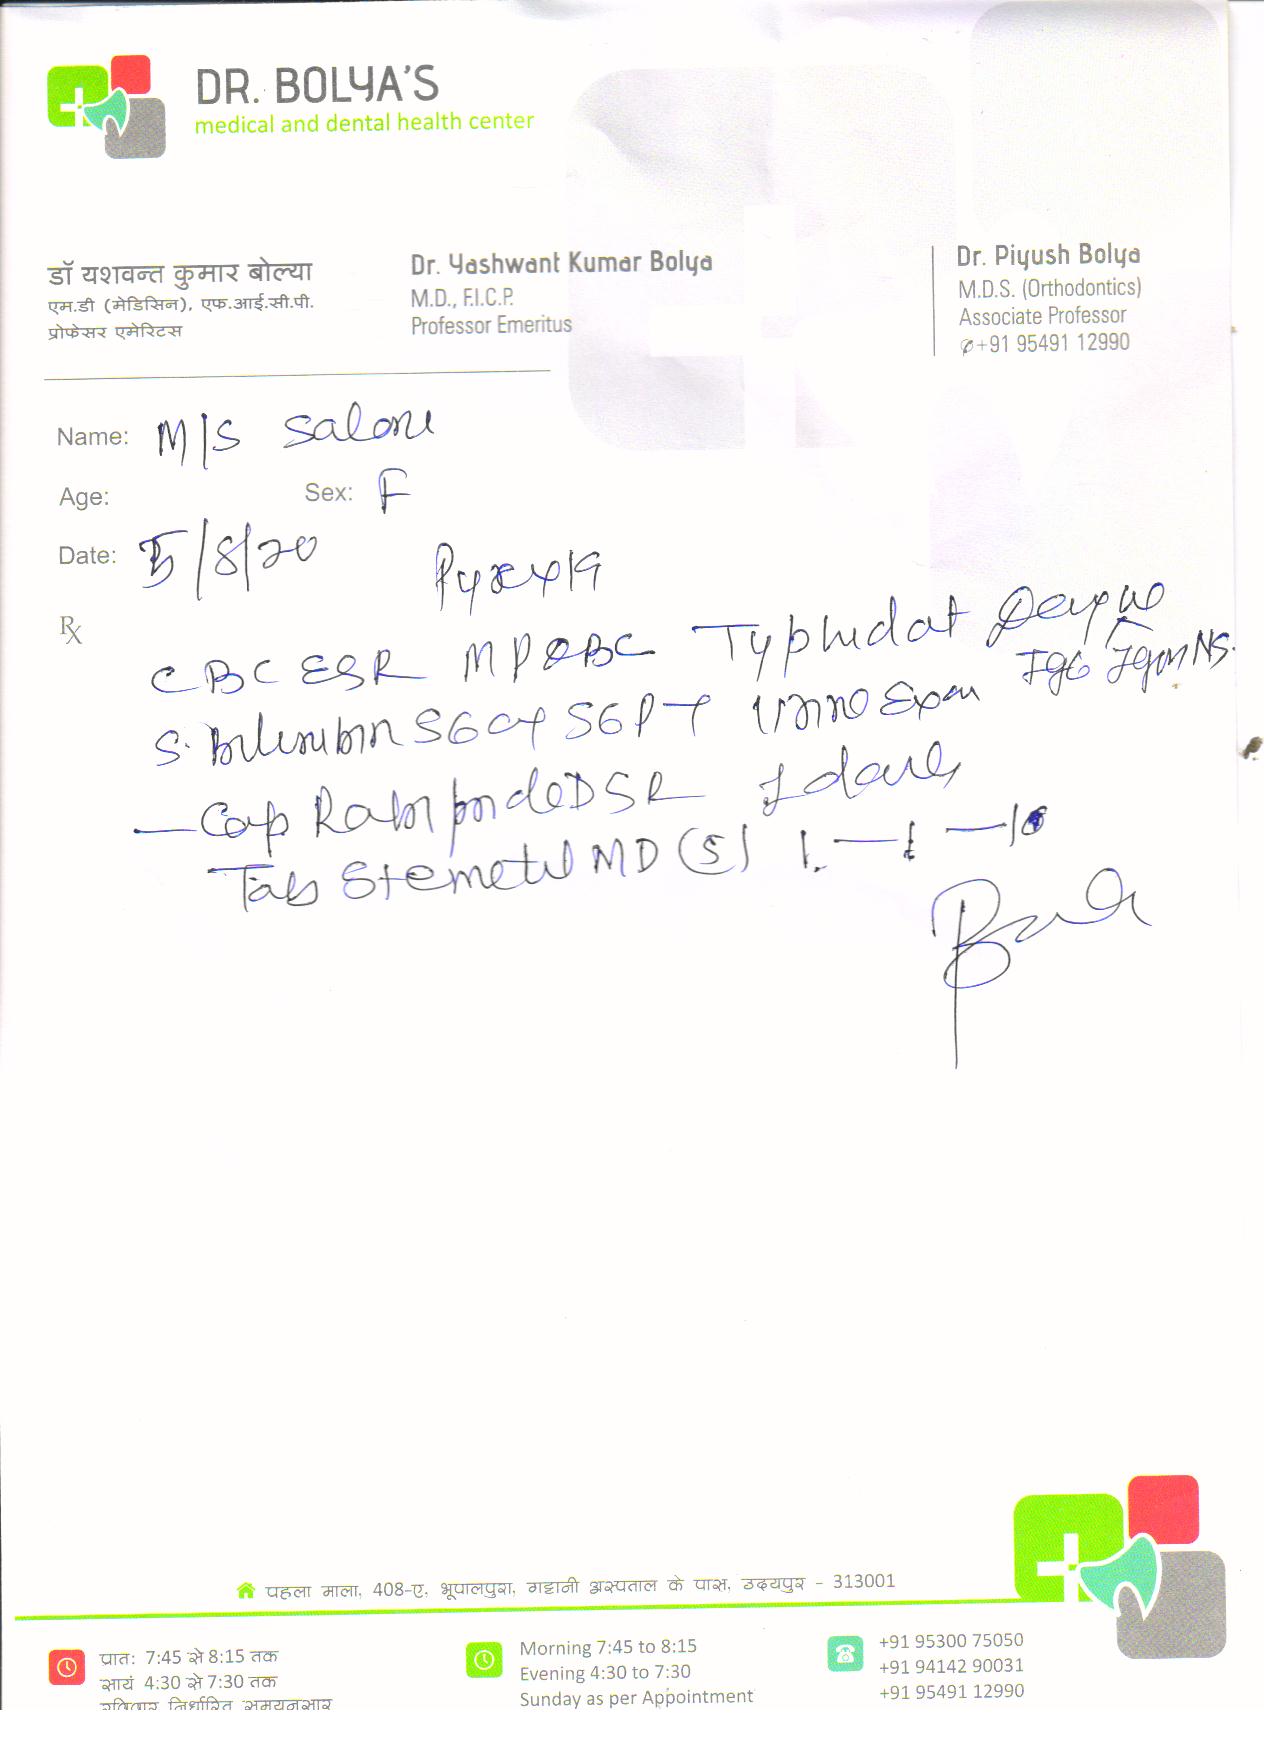 DR. BOLYA'S
medical and dental health center
डॉ यशवन्त कुमार बोल्या
एम.डी (मेडिसिन), एफ.आई.सी.पी.
प्रोफेसर एमेरिटस
Dr. Yashwant Kumar Bolya
M.D., F.I.C.P.
Professor Emeritus
Dr. Piyush Bolya
M.D.S. (Orthodontics)
Associate Professor
✆+91 95491 12990
Name: M/S Saloni
Age: Sex: F
Date: 5/8/20
Pyrexia
Rx
CBC ESR MP QBC Typhidot Dengue
IgG IgM NS.
S. Bilirubin SGOT SGPT Urine Exam
Cap DSR 1 daily
Tab Stemetil MD (5) 1 — 1 — 1
पहला माला, 408-ए, भूपालपुरा, गट्टानी अस्पताल के पास, उदयपुर - 313001
प्रात: 7:45 से 8:15 तक
सायं 4:30 से 7:30 तक
रविवार निर्धारित समयनुसार
Morning 7:45 to 8:15
Evening 4:30 to 7:30
Sunday as per Appointment
+91 95300 75050
+91 94142 90031
+91 95491 12990